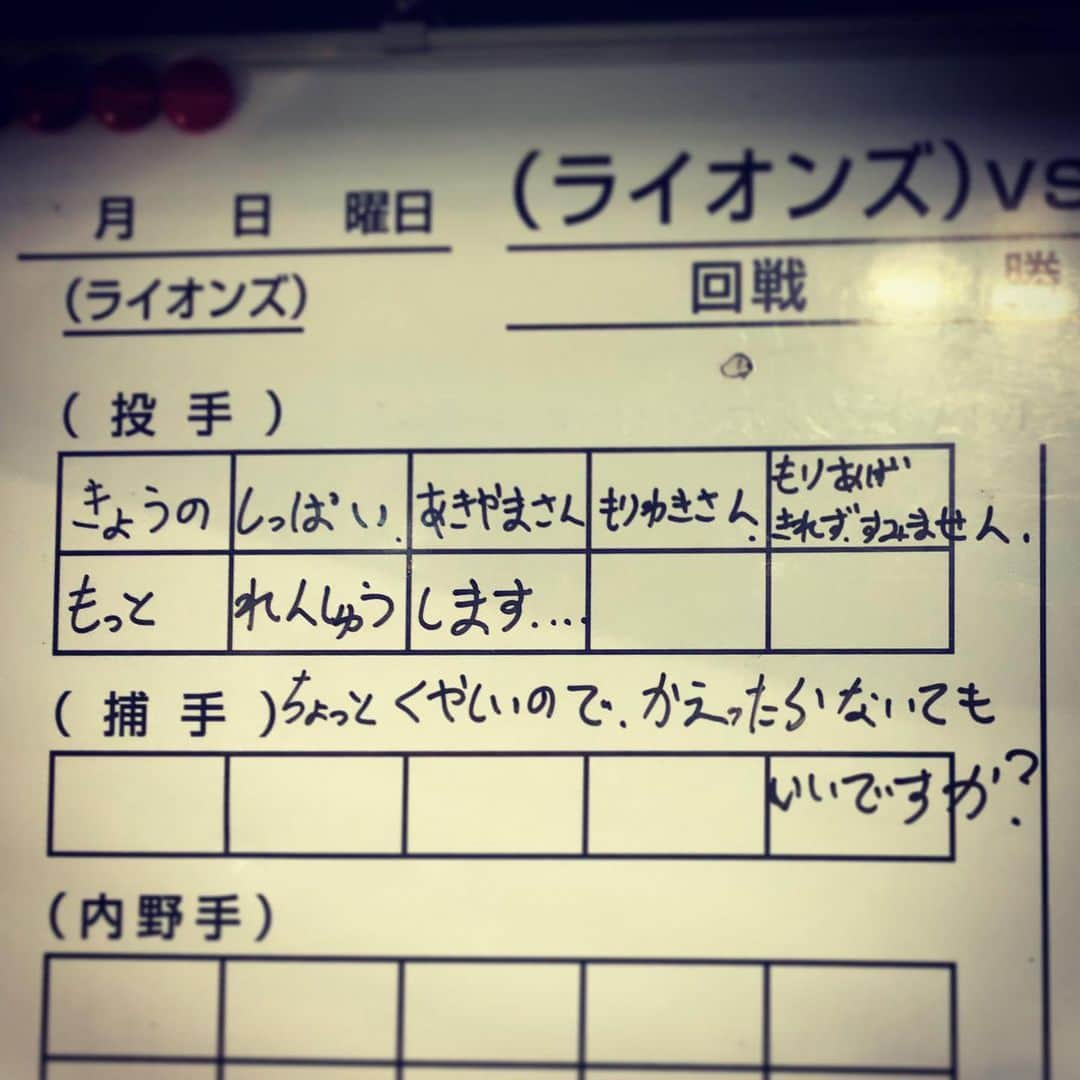 月 日 曜日 (ライオンズ)vs
(ライオンズ) 回戦 勝
(投手)
きょうの しっぱい. あきやまさん もりわきさん. もりあげ
きれず.すみません.
もっと れんしゅう します....
(捕手)ちょっとくやしいので.かえったらないても
いいですか?
(内野手)